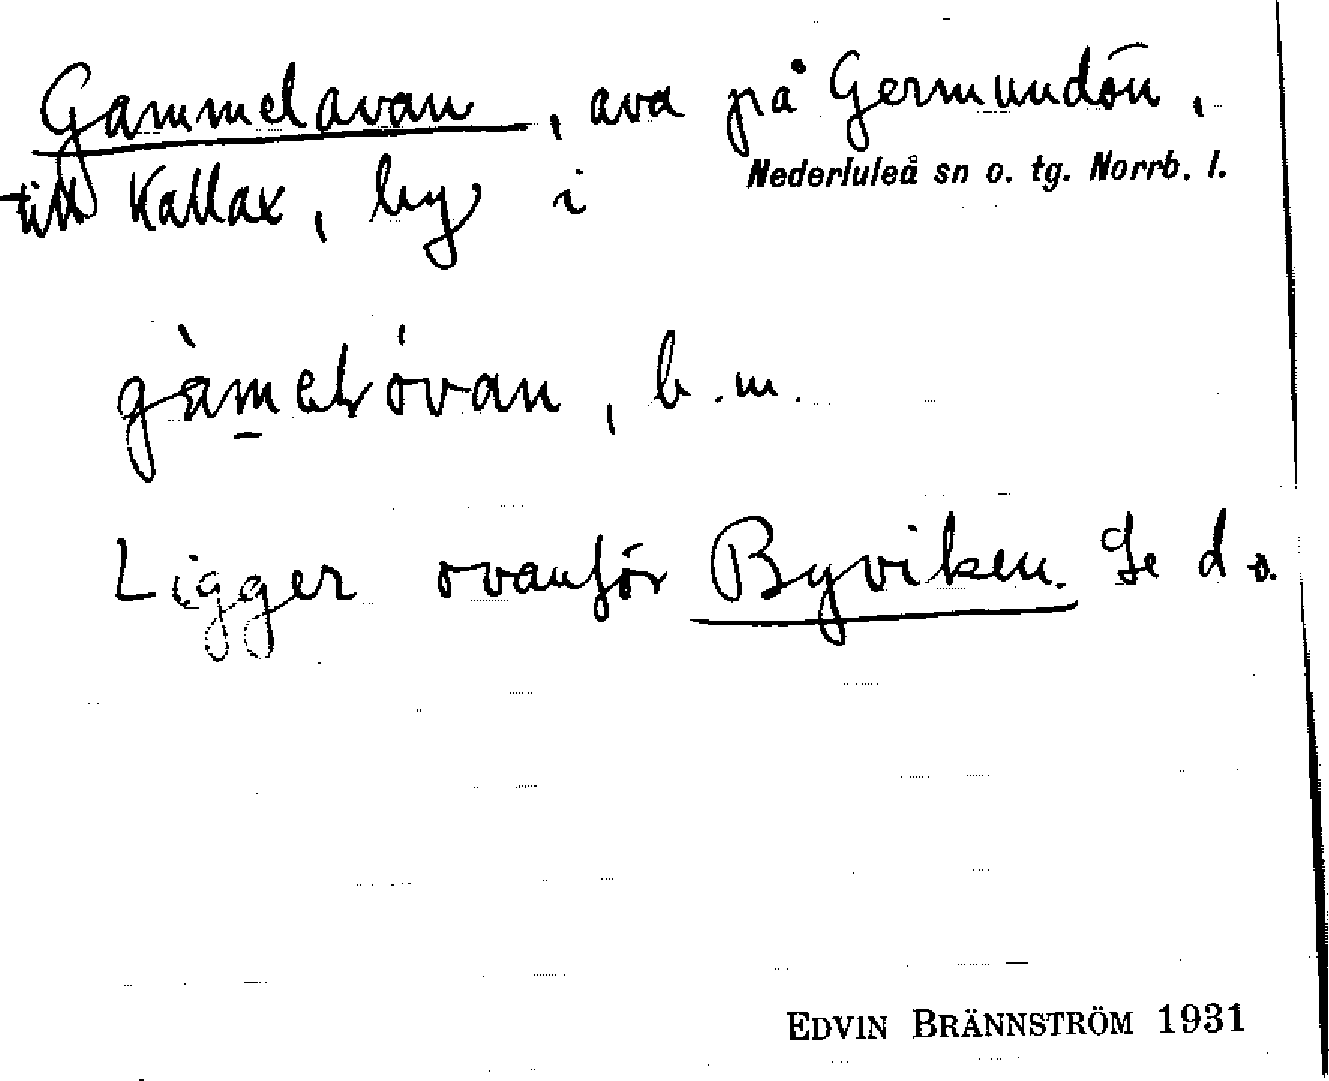 Gammelavan, ava på Germundön,
till Kallax, by i Nederluleå sn o. tg. Norrb. l.
gàmelóvan, b.m.
Ligger ovanför Byviken. Se d.o.
EDVIN BRÄNNSTRÖM 1931